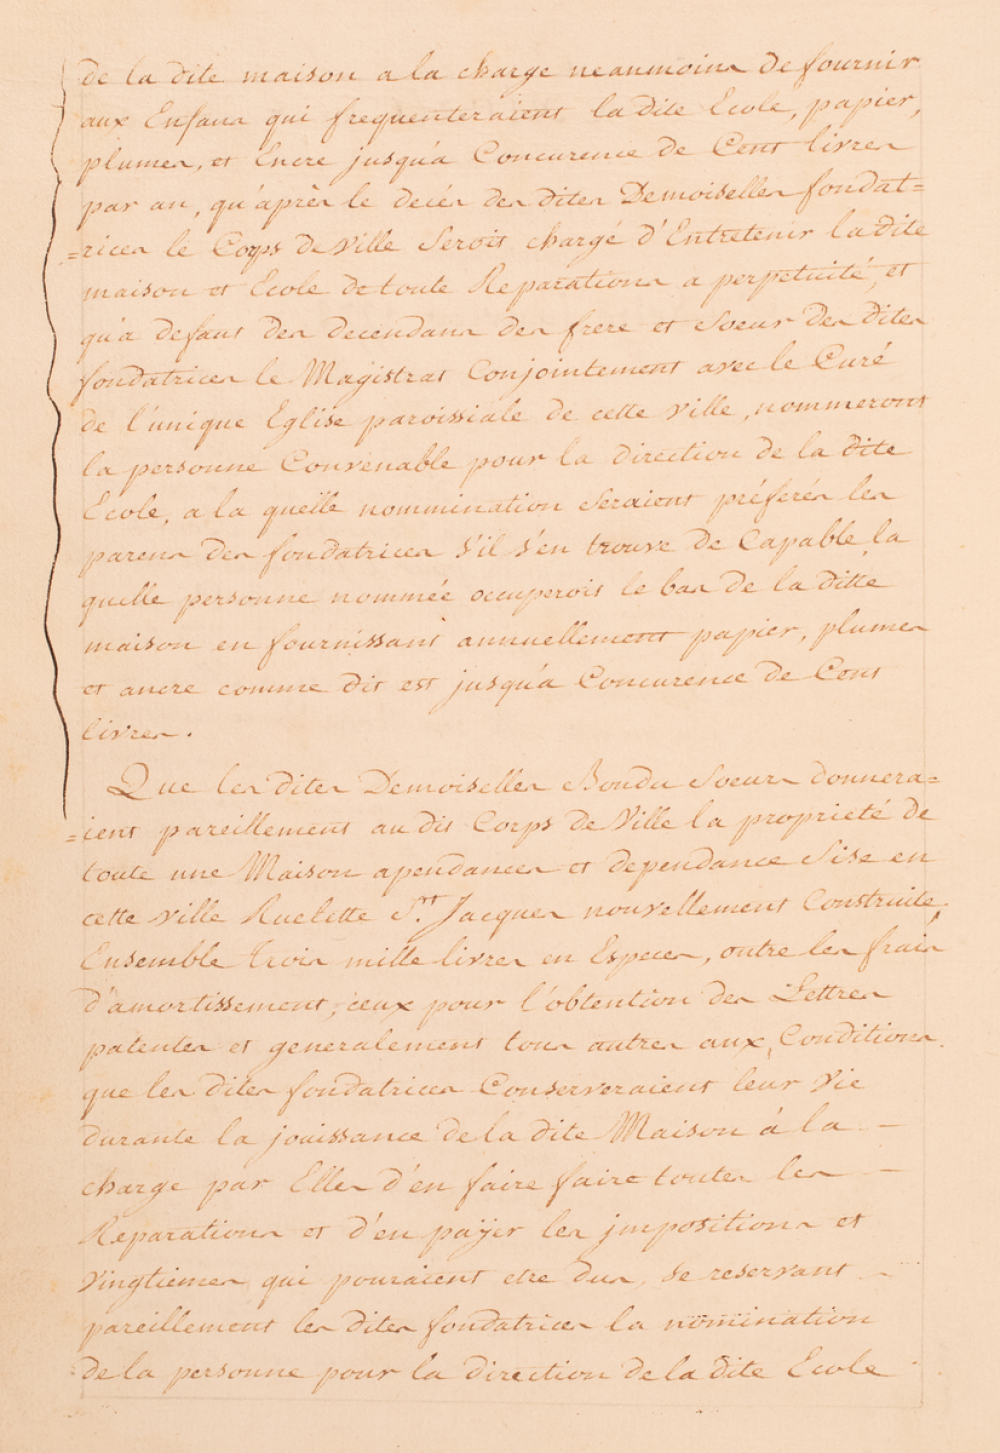 de la dite maison a la charge neanmoins de fournir
aux Enfans qui frequenteraient la dite Ecole, papier,
plumes, et Encre jusqu'a Concurence de Cent livres
par an, qu'áprès le decés des dites Demoiselles fondat=
=rices le Corps de Ville Seroit chargé d'Entretenir la dite
maison et Ecole de toute Reparations a perpetuité, et
qu'a defaut des decendans des frere et Soeur des dites
fondatrices le Magistrat Conjointement avec le Curé
de l'unique Eglise paroissiale de cette ville, nommeront
la personne Convenable pour la direction de la dite
Ecole, a la quelle nommination Seraient préferés les
parens des fondatrices s'il s'en trouve de Capable, la
quelle personne nommée occuperoit le bas de la ditte
maison en fournissant annuellement papier, plumes
et ancre comme dit est jusqu'a Concurence de Cent
livres.
Que les dites Demoiselles Bondu Soeurs donnera=
=ient pareillement au dit Corps de Ville la proprieté de
toute une Maison apendances et dependance Sise en
cette ville Ruelette St. Jacques nouvellement Construite,
Ensemble trois mille livres en Especes, outre les frais
d'amortissement, ceux pour l'obtention des Lettres
patentes et generalement tous autres aux Conditions.
que les dites fondatrices Conserveraient leur vie
durante la jouissance de la dite Maison á la
charge par Elles d'en faire faire toutes les
Reparations et d'en paÿer les jmpositions et
vingtiemes qui pouraient etre dus, se reservant
pareillement les dites fondatrices la nomination
de la personne pour la direction de la dite Ecole